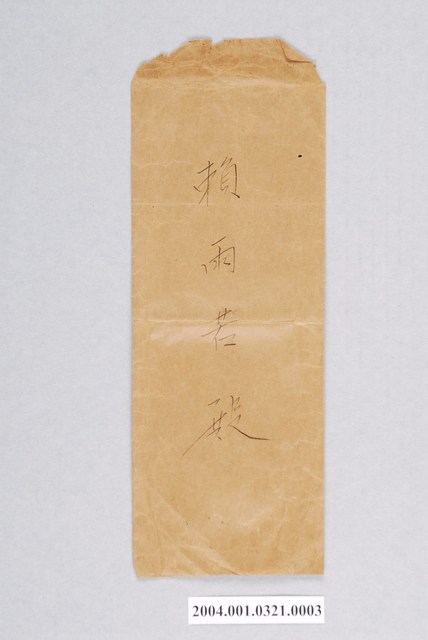 賴雨若殿
2004.001.0321.0003